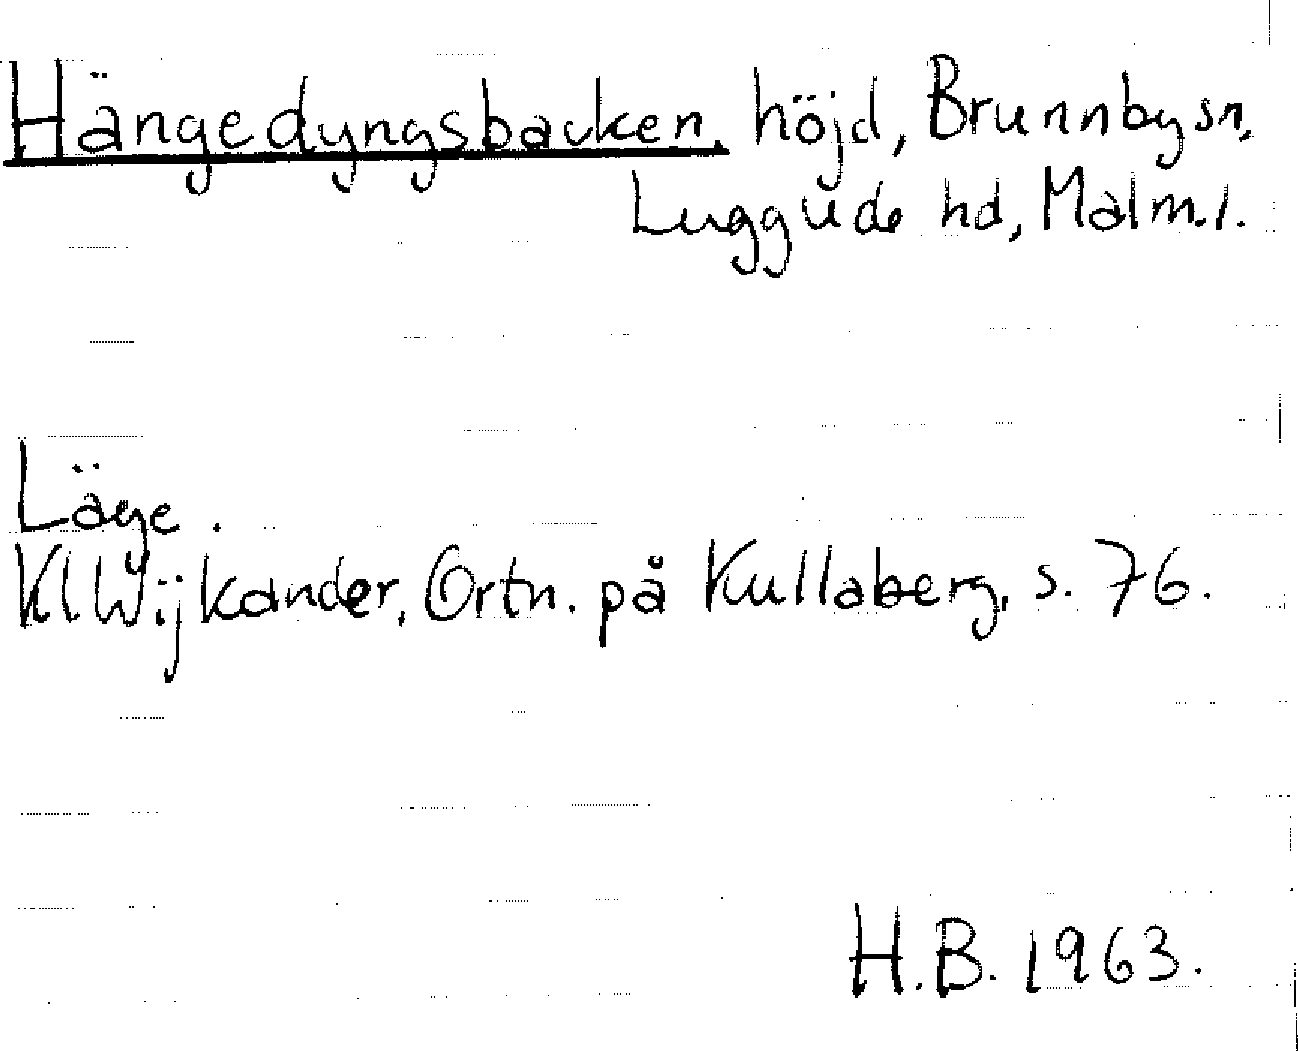 Hängedyngsbacken, höjd, Brunnby sn,
Luggude hd, Malm.l.
Läge.
Kl Wijkander, Ortn. på Kullaberg, s. 76.
H.B. 1963.